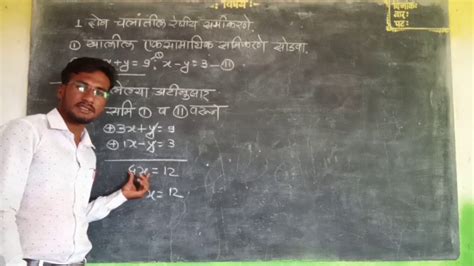 विषय :
दिनांक:
वार:
पट:
1. दोन चलांतील रेषीय समीकरणे
① खालील एकसामायिक समीकरणे सोडवा.
x+y=9 ① ; x-y=3 - ⑪
दिलेल्या अटीनुसार
समी ① व ⑪
⊕3x+y=9
⊕1x-y=3
4x=12
x=12